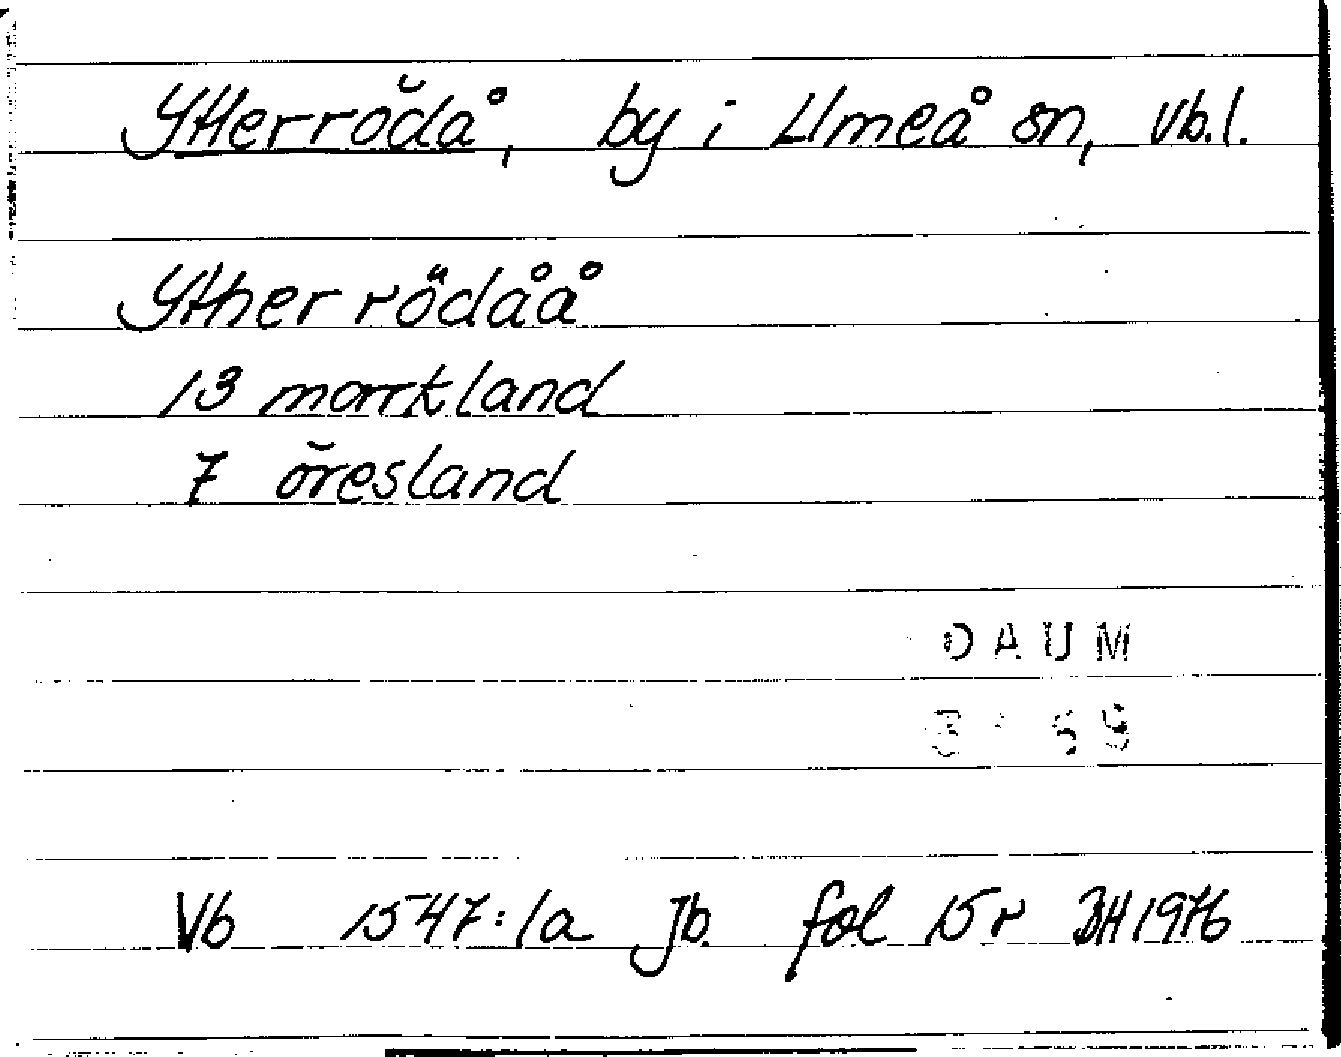 Ytterrödå, by i Umeå sn, Vb.l.
Ytherrödåå
13 markland
7 öresland
DAUM
Vb 1547:1a Jb. fol 15r BH1976